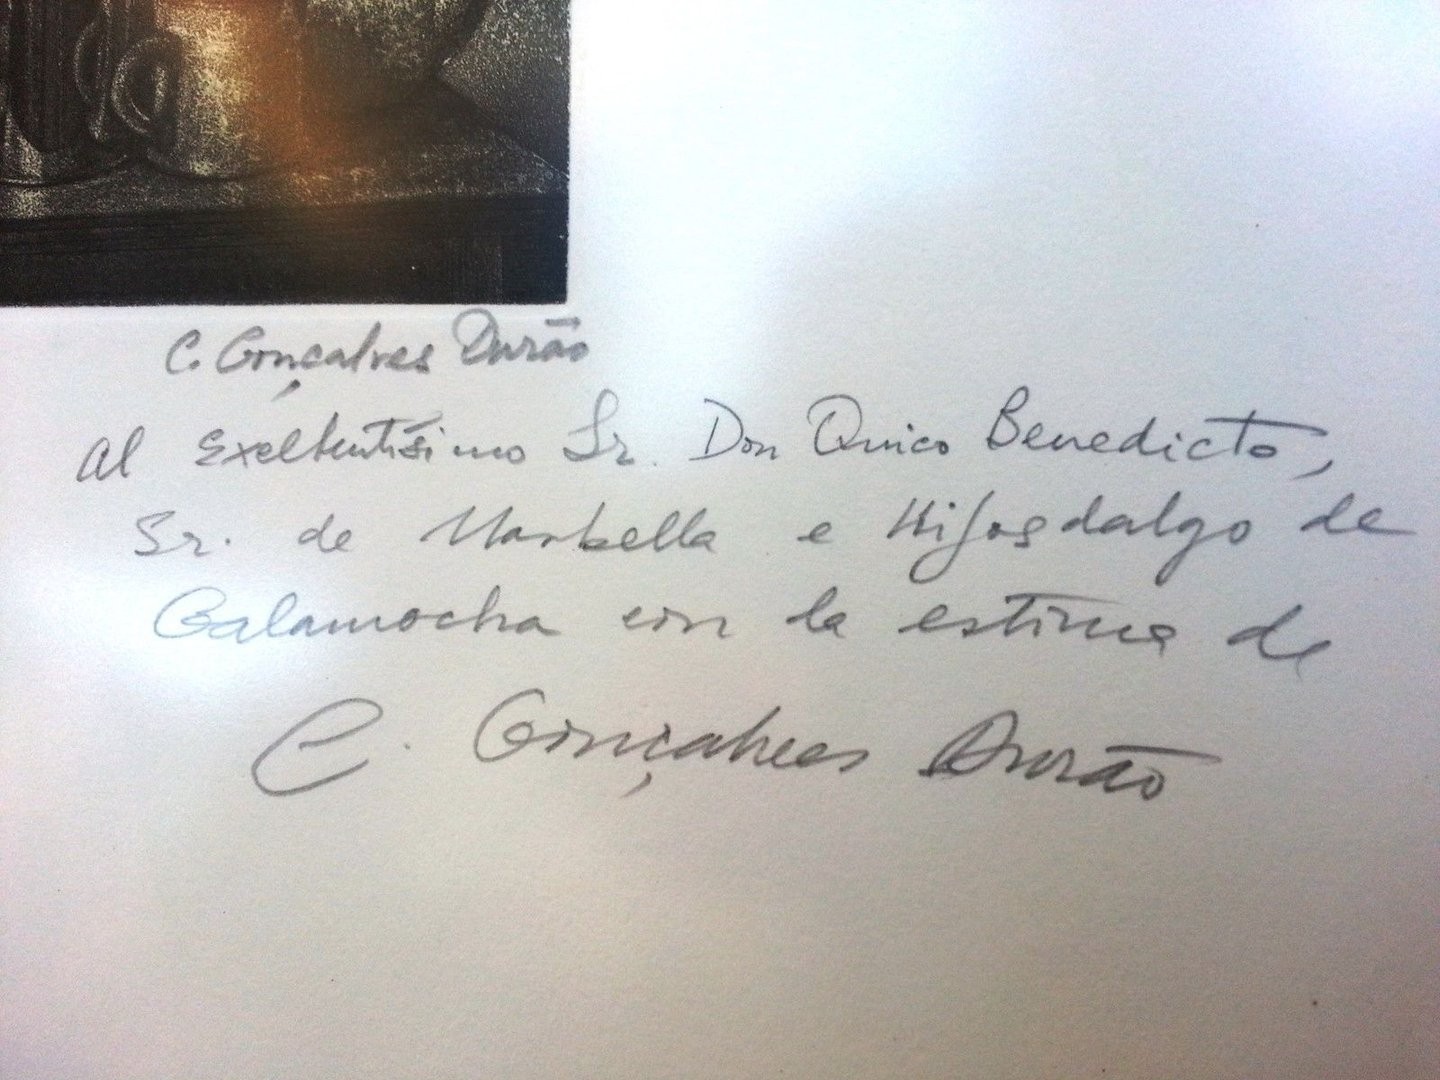 C. Gonçalves Durão
Al Exellentísimo Sr. Don Quico Benedicto,
Sr. de Marbella e Hijosdalgo de
Calamocha con la estima de
C. Gonçalves Durão